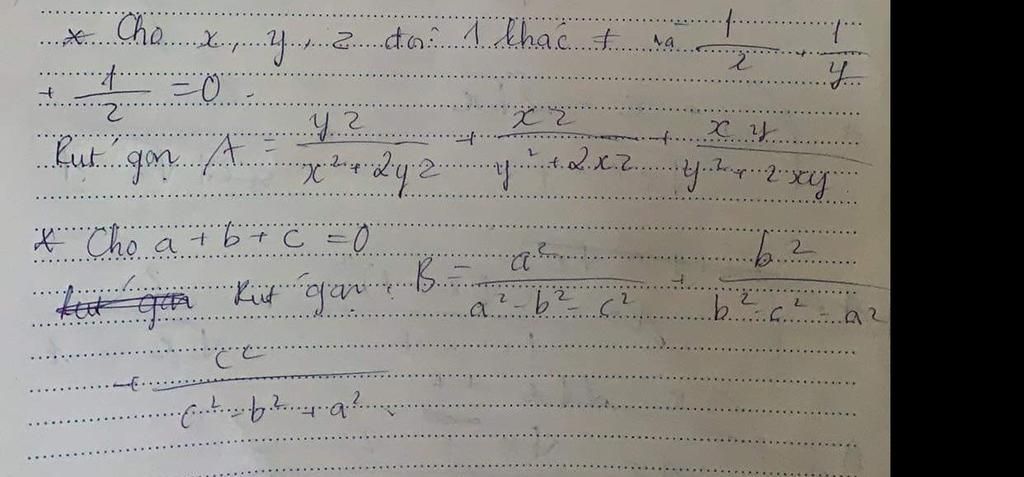 * Cho x, y, z đôi 1 khác ≠ và 1/2 + 1/y
+ 1/2 = 0.
Rut' gọn A = yz/(x² + 2yz) + xz/(y² + 2xz) + xy/(y² + 2xy)
* Cho a + b + c = 0
Rut' gọn B = a²/(a² - b² - c²) + b²/(b² - c² - a²)
+ c²/(c² - b² + a²).